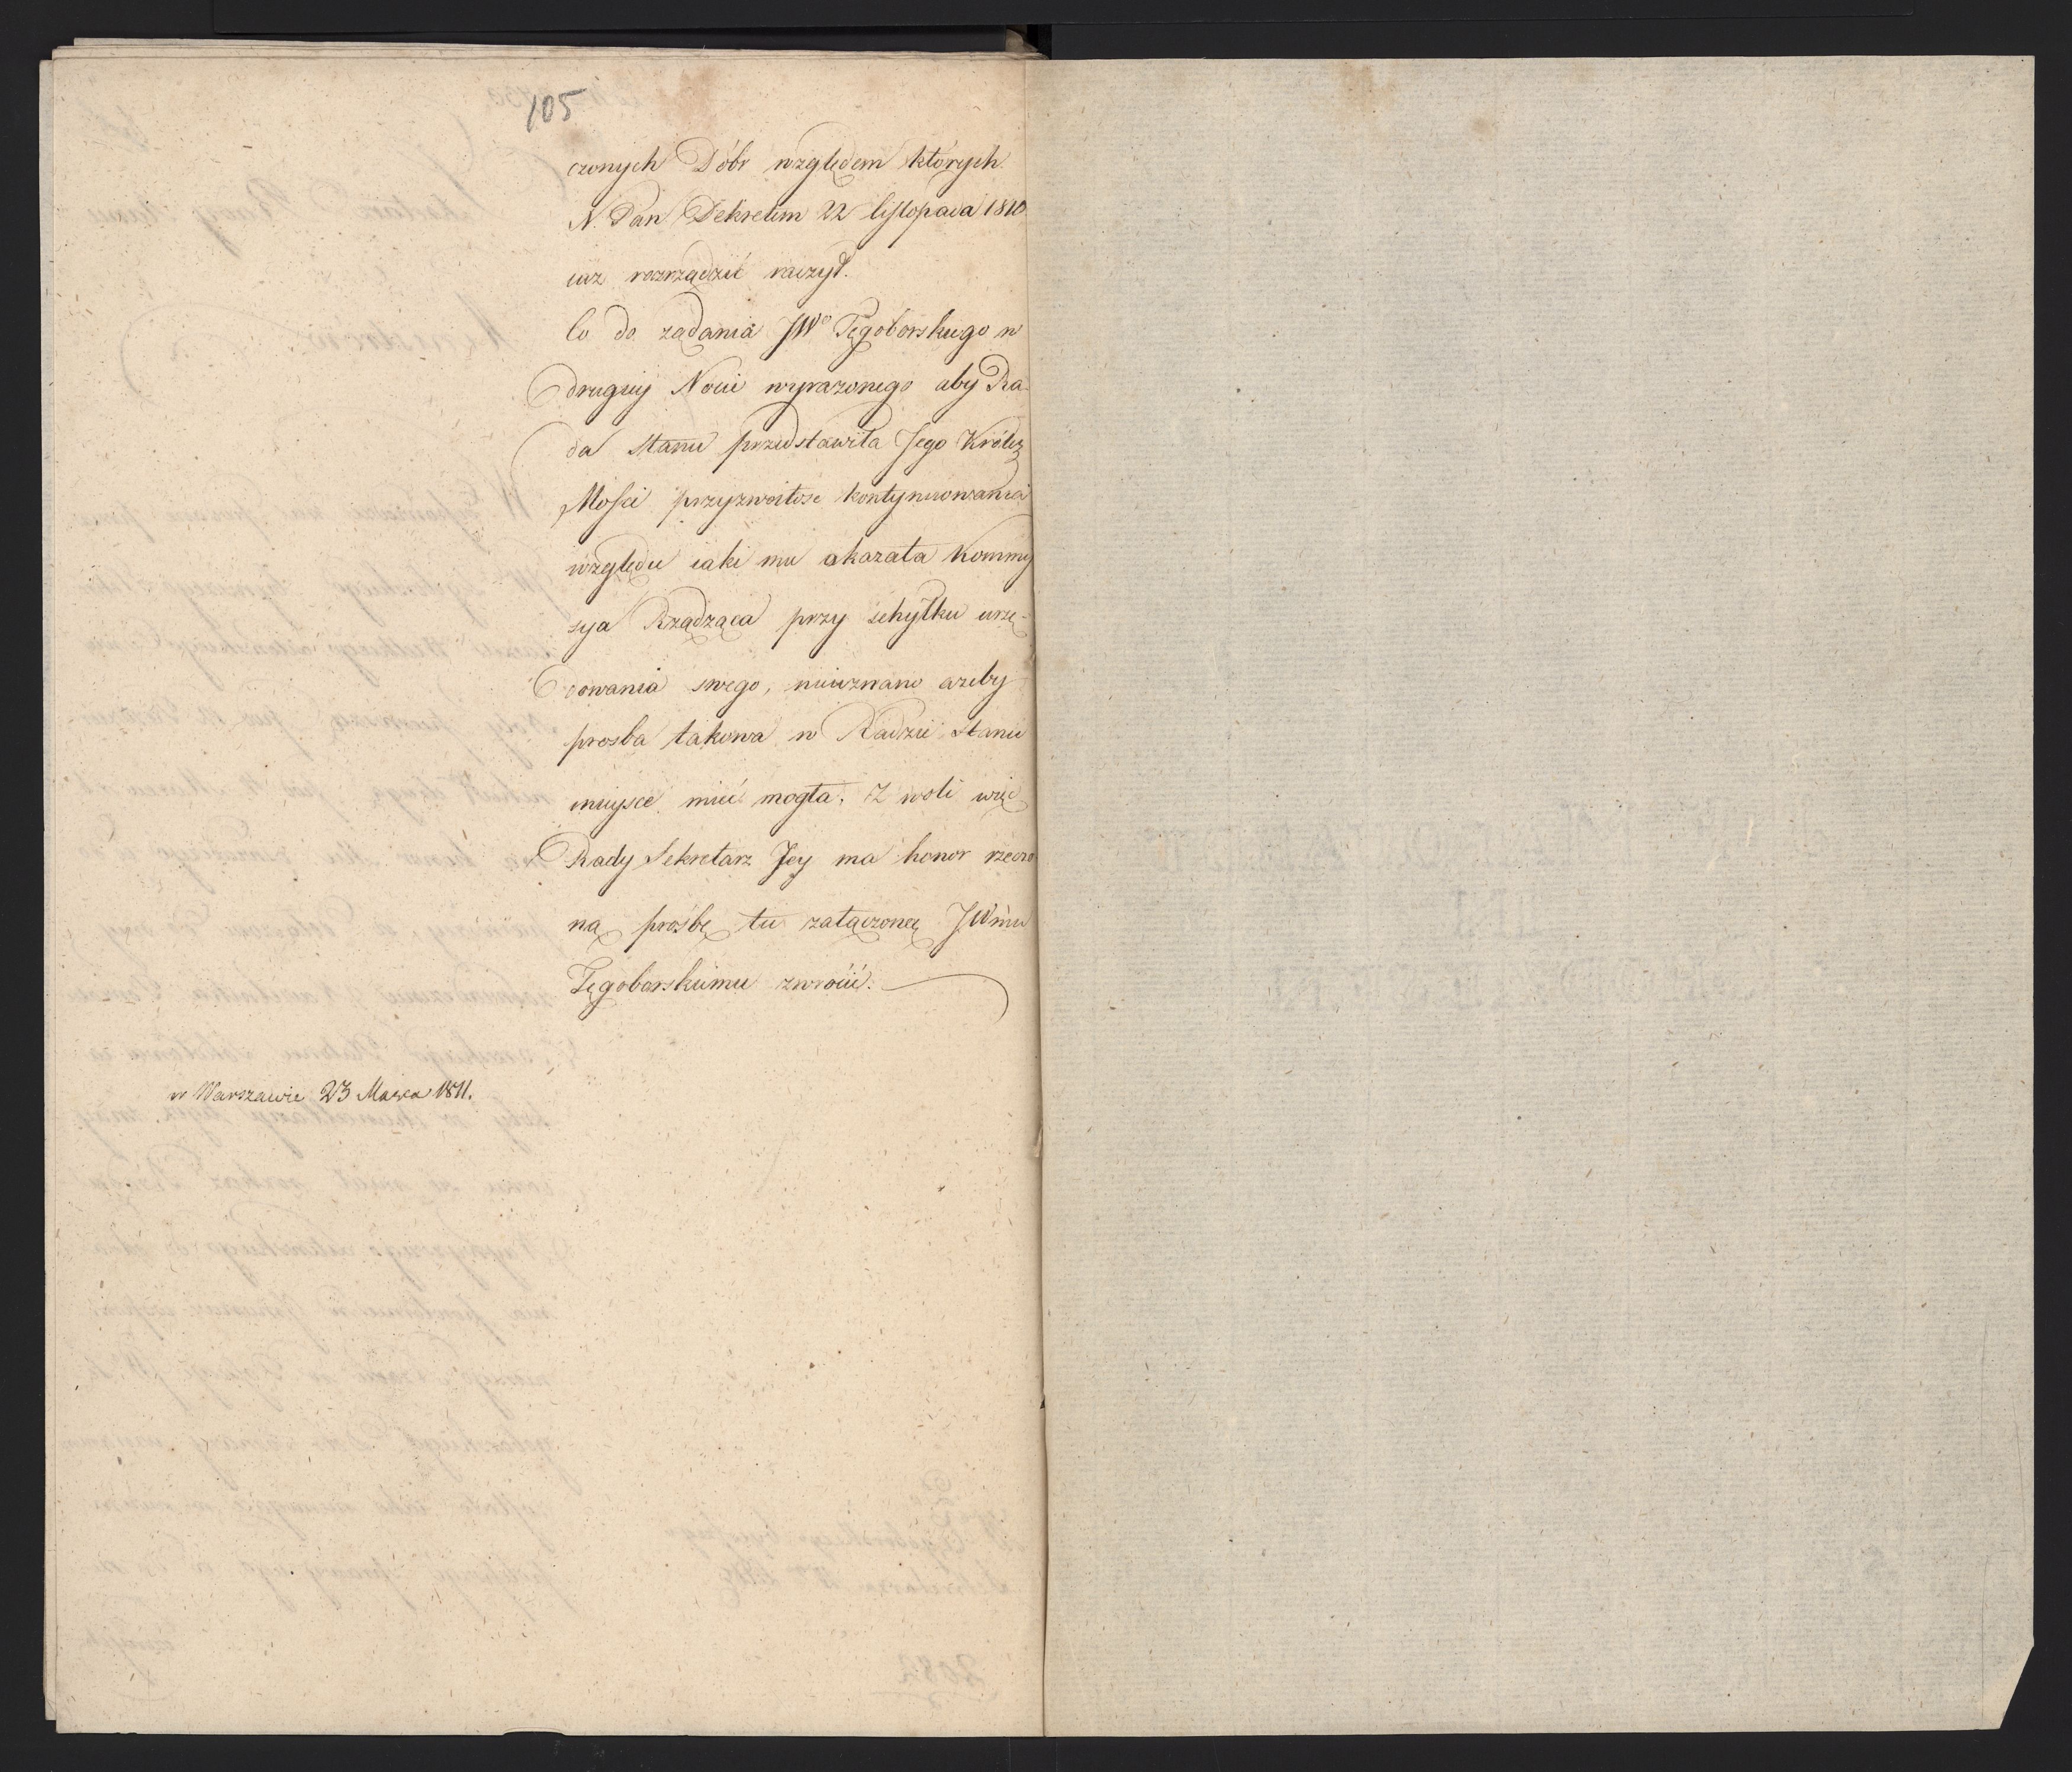 105
czonych Dóbr względem których
N. Pan Dekretem 22 listopada 1810
iuz rozrządzić raczył.
Co do żądania JWo Tęgoborskiego w
drugiey Nocie wyrażonego aby Ra-
da Stanu przedstawiła Jego Królez
Mości przyzwoitość kontynuowania
względu iaki mu okazała Kommis
sya Rządząca przy schyłku urzę-
dowania swego, nieuznano ażeby
prośba takowa w Radzie Stanu
mieysce mieć mogła. Z woli więc
Rady Sekretarz Jey ma honor rzeczo
ną prośbę tu załączoną JWmu
Tęgoborskiemu zwrócić.
w Warszawie 23 Marca 1811.